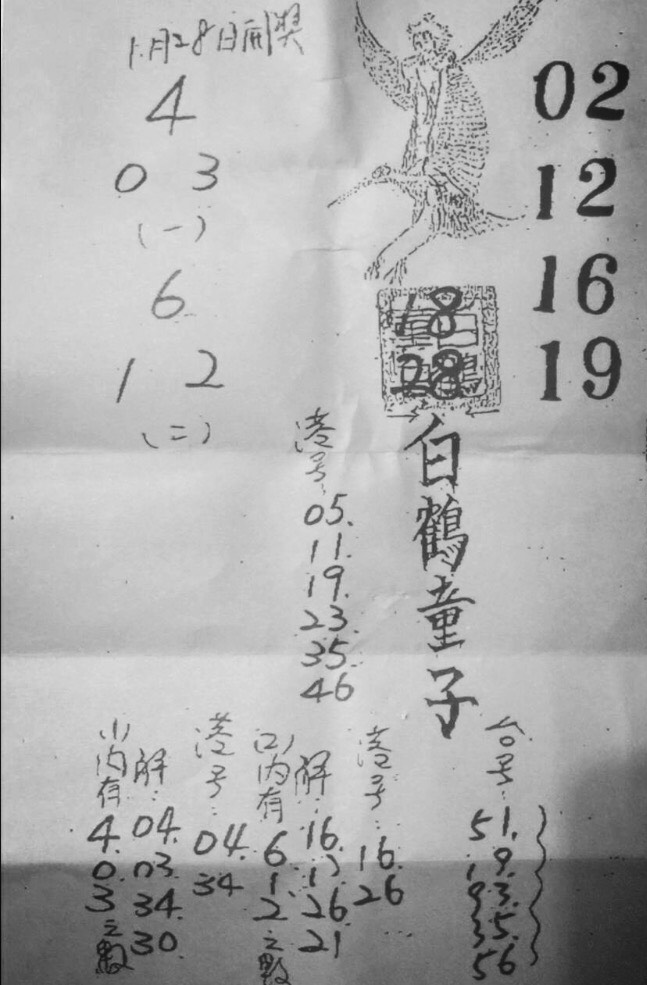 1月28日開獎
4
0 3
(一)
6
1 2
(二)
02
12
16
19
18
28
白鶴童子
港号:
05.
11.
19.
23.
35.
46
台号:
51.
港号:
16.
26
(2)內有
6.
1.
2
之數
解:
16.
26.
21
港号:
04.
34
(1)內有
4.
0.
3
之數
解:
04.
03.
34.
30